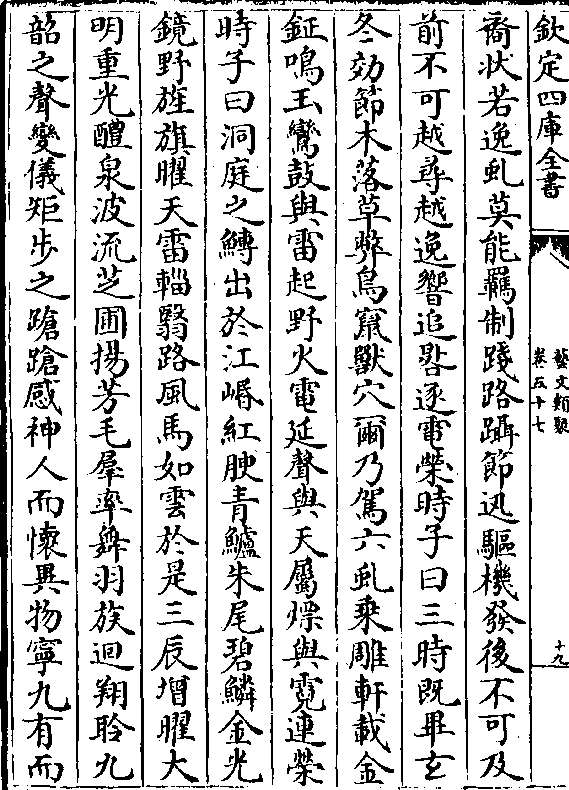 欽定四庫全書
藝文類聚
卷五十七
十九
裔狀若逸虬莫能羈制踐路躡節迅驅機發後不可及
前不可越尋越逸響追晷逐電榮時子曰三時既畢玄
冬効節木落草弊鳥竄獸穴爾乃駕六虬乘雕軒載金
鉦鳴玉鸞鼓與雷起野火電延聲與天屬熛與霓連榮
時子曰洞庭之鱄出於江㟭紅腴青鱸朱尾碧鱗金光
鏡野旌旗曜天雷輜翳路風馬如雲於是三辰增曜大
明重光醴泉波流芝圃揚芳毛羣率舞羽族迴翔聆九
韶之聲變儀矩步之蹌蹌感神人而懷異物寧九有而